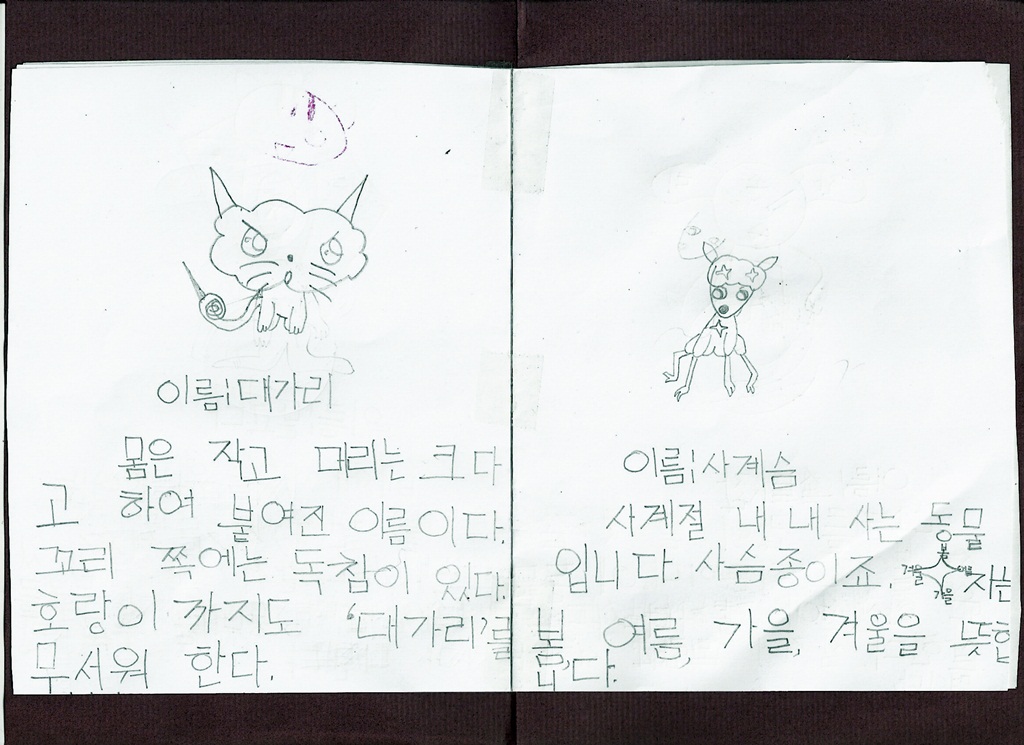 이름;대가리
몸은 작고 머리는 크다
고 하여 붙여진 이름이다.
꼬리 쪽에는 독침이 있다.
호랑이 까지도 '대가리'를
무서워 한다.
이름;사계슴
사계절 내내 사는 동물
입니다. 사슴종이죠.
봄
겨울 여름
가을
자는
봄, 여름, 가을, 겨울을 뜻합
니다.